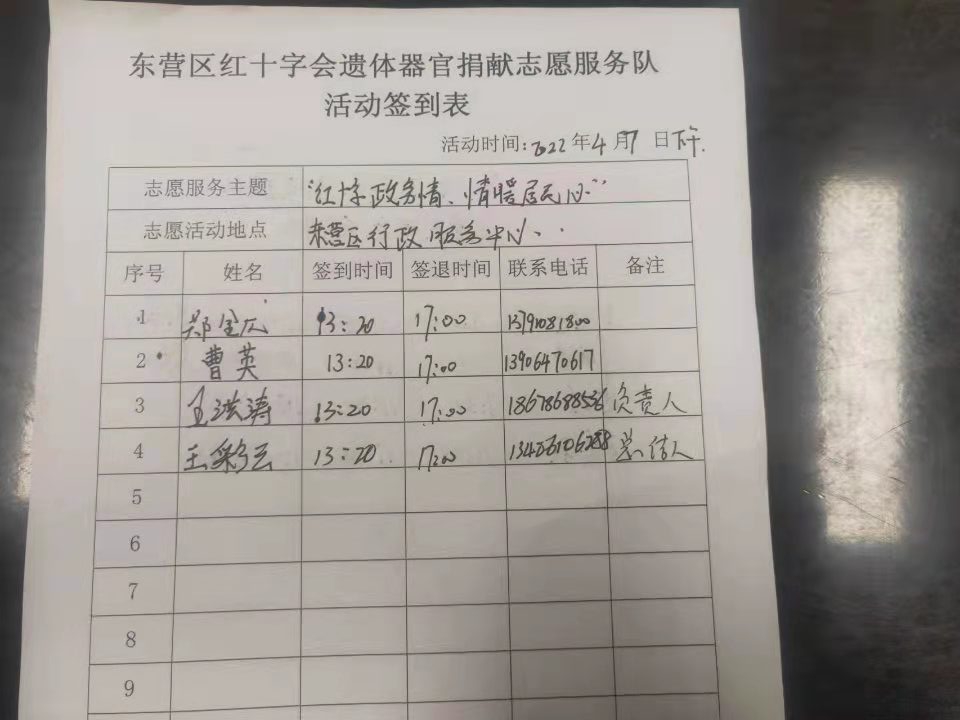 东营区红十字会遗体器官捐献志愿服务队
活动签到表
活动时间:2022年4月7日下午.
志愿服务主题 “红十字政务情、情暖居民心”
志愿活动地点 东营区行政服务中心
序号 姓名 签到时间 签退时间 联系电话 备注
1 郑 13:20 17:00
2 曹英 13:20 17:00 13906470617
3 王洪涛 13:20 17:00 18678688536 负责人
4 王彩云 13:20 17:00 总结人
5
6
7
8
9